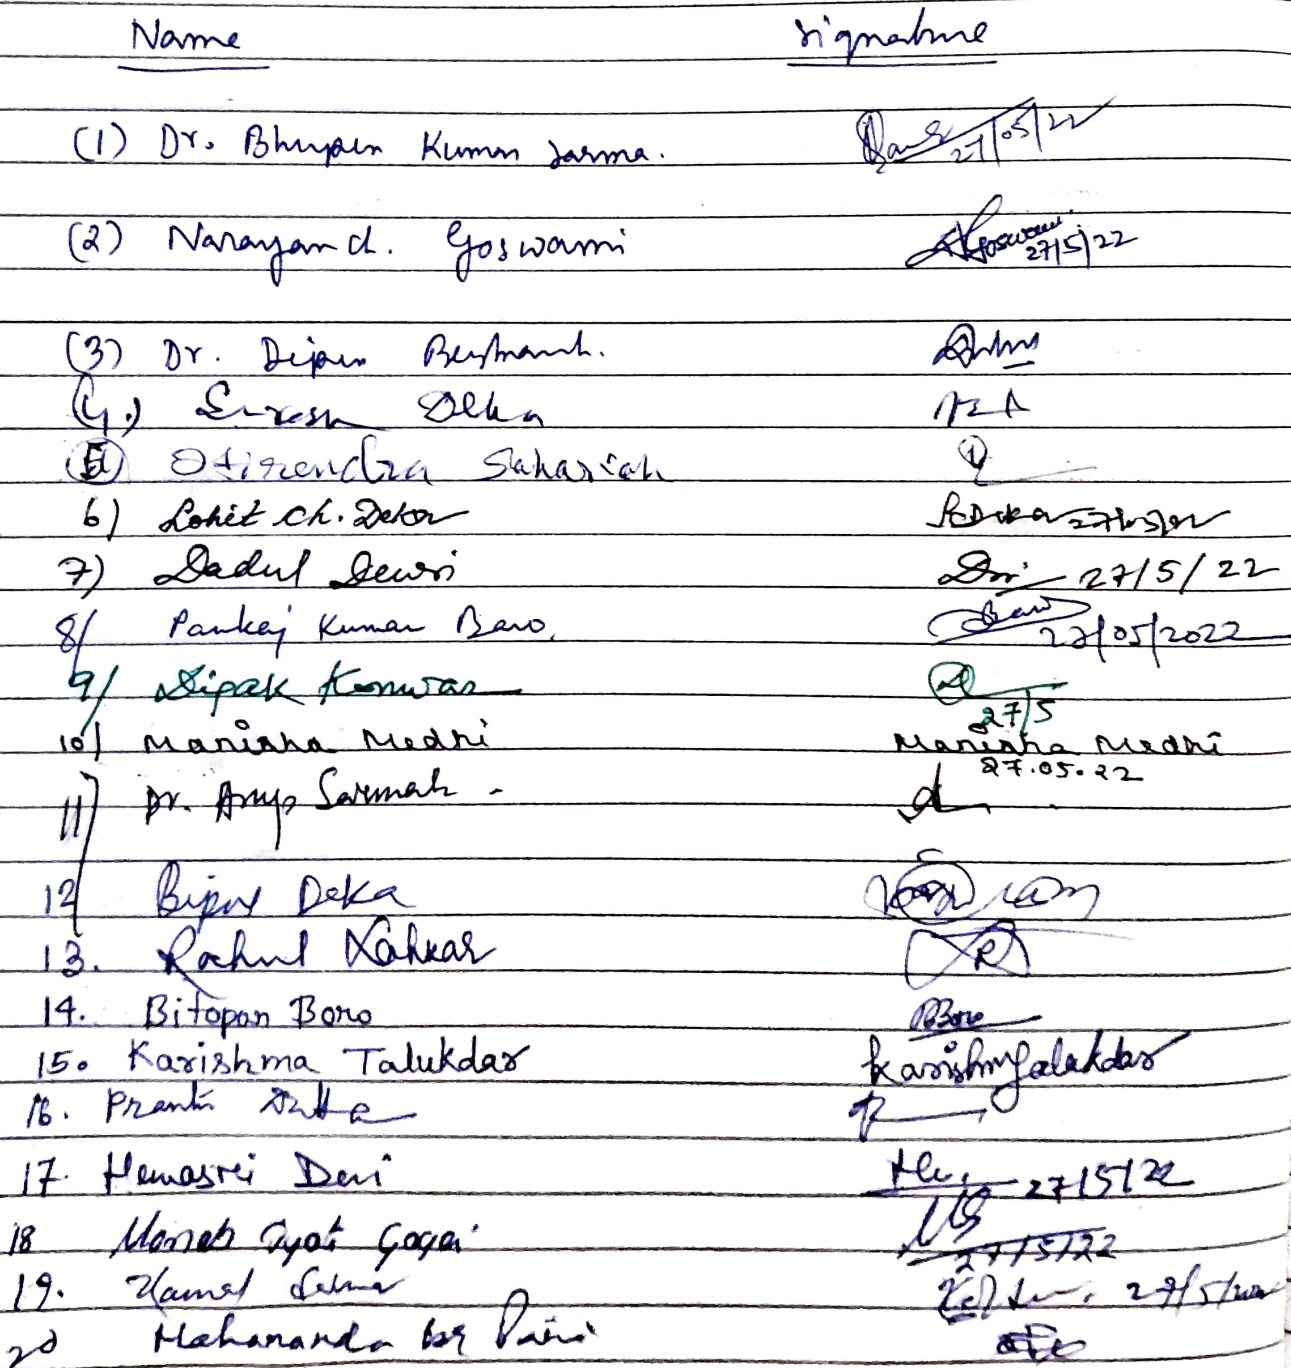 Name Signature
(1) Dr. Bhupen Kumar Sarma. 27/05/22
(2) Narayan ch. Goswami Goswami 27/5/22
(3) Dr. Dipen
(4.) Suresh Deka
5 Sahariah
6) Lohit ch. Deka
7) Dadul Dewri 27/5/22
8/ Pankaj Kumar Baro. 27/05/2022
9/ Dipak Konwar 27/5
10) Manisha Medhi Manisha Medhi 27.05.22
11) Dr. Anup Sarmah -
12 Bipul Deka
13. Rahul Lahkar R
14. Bitopan Boro BBoro
15. Karishma Talukdar Karishma Talukdar
16. Dutta
17. Hemasri Devi 27/5/22
18 Manab Jyoti Gogoi 27/5/22
19. Kamal 27/5/
20 Mahananda